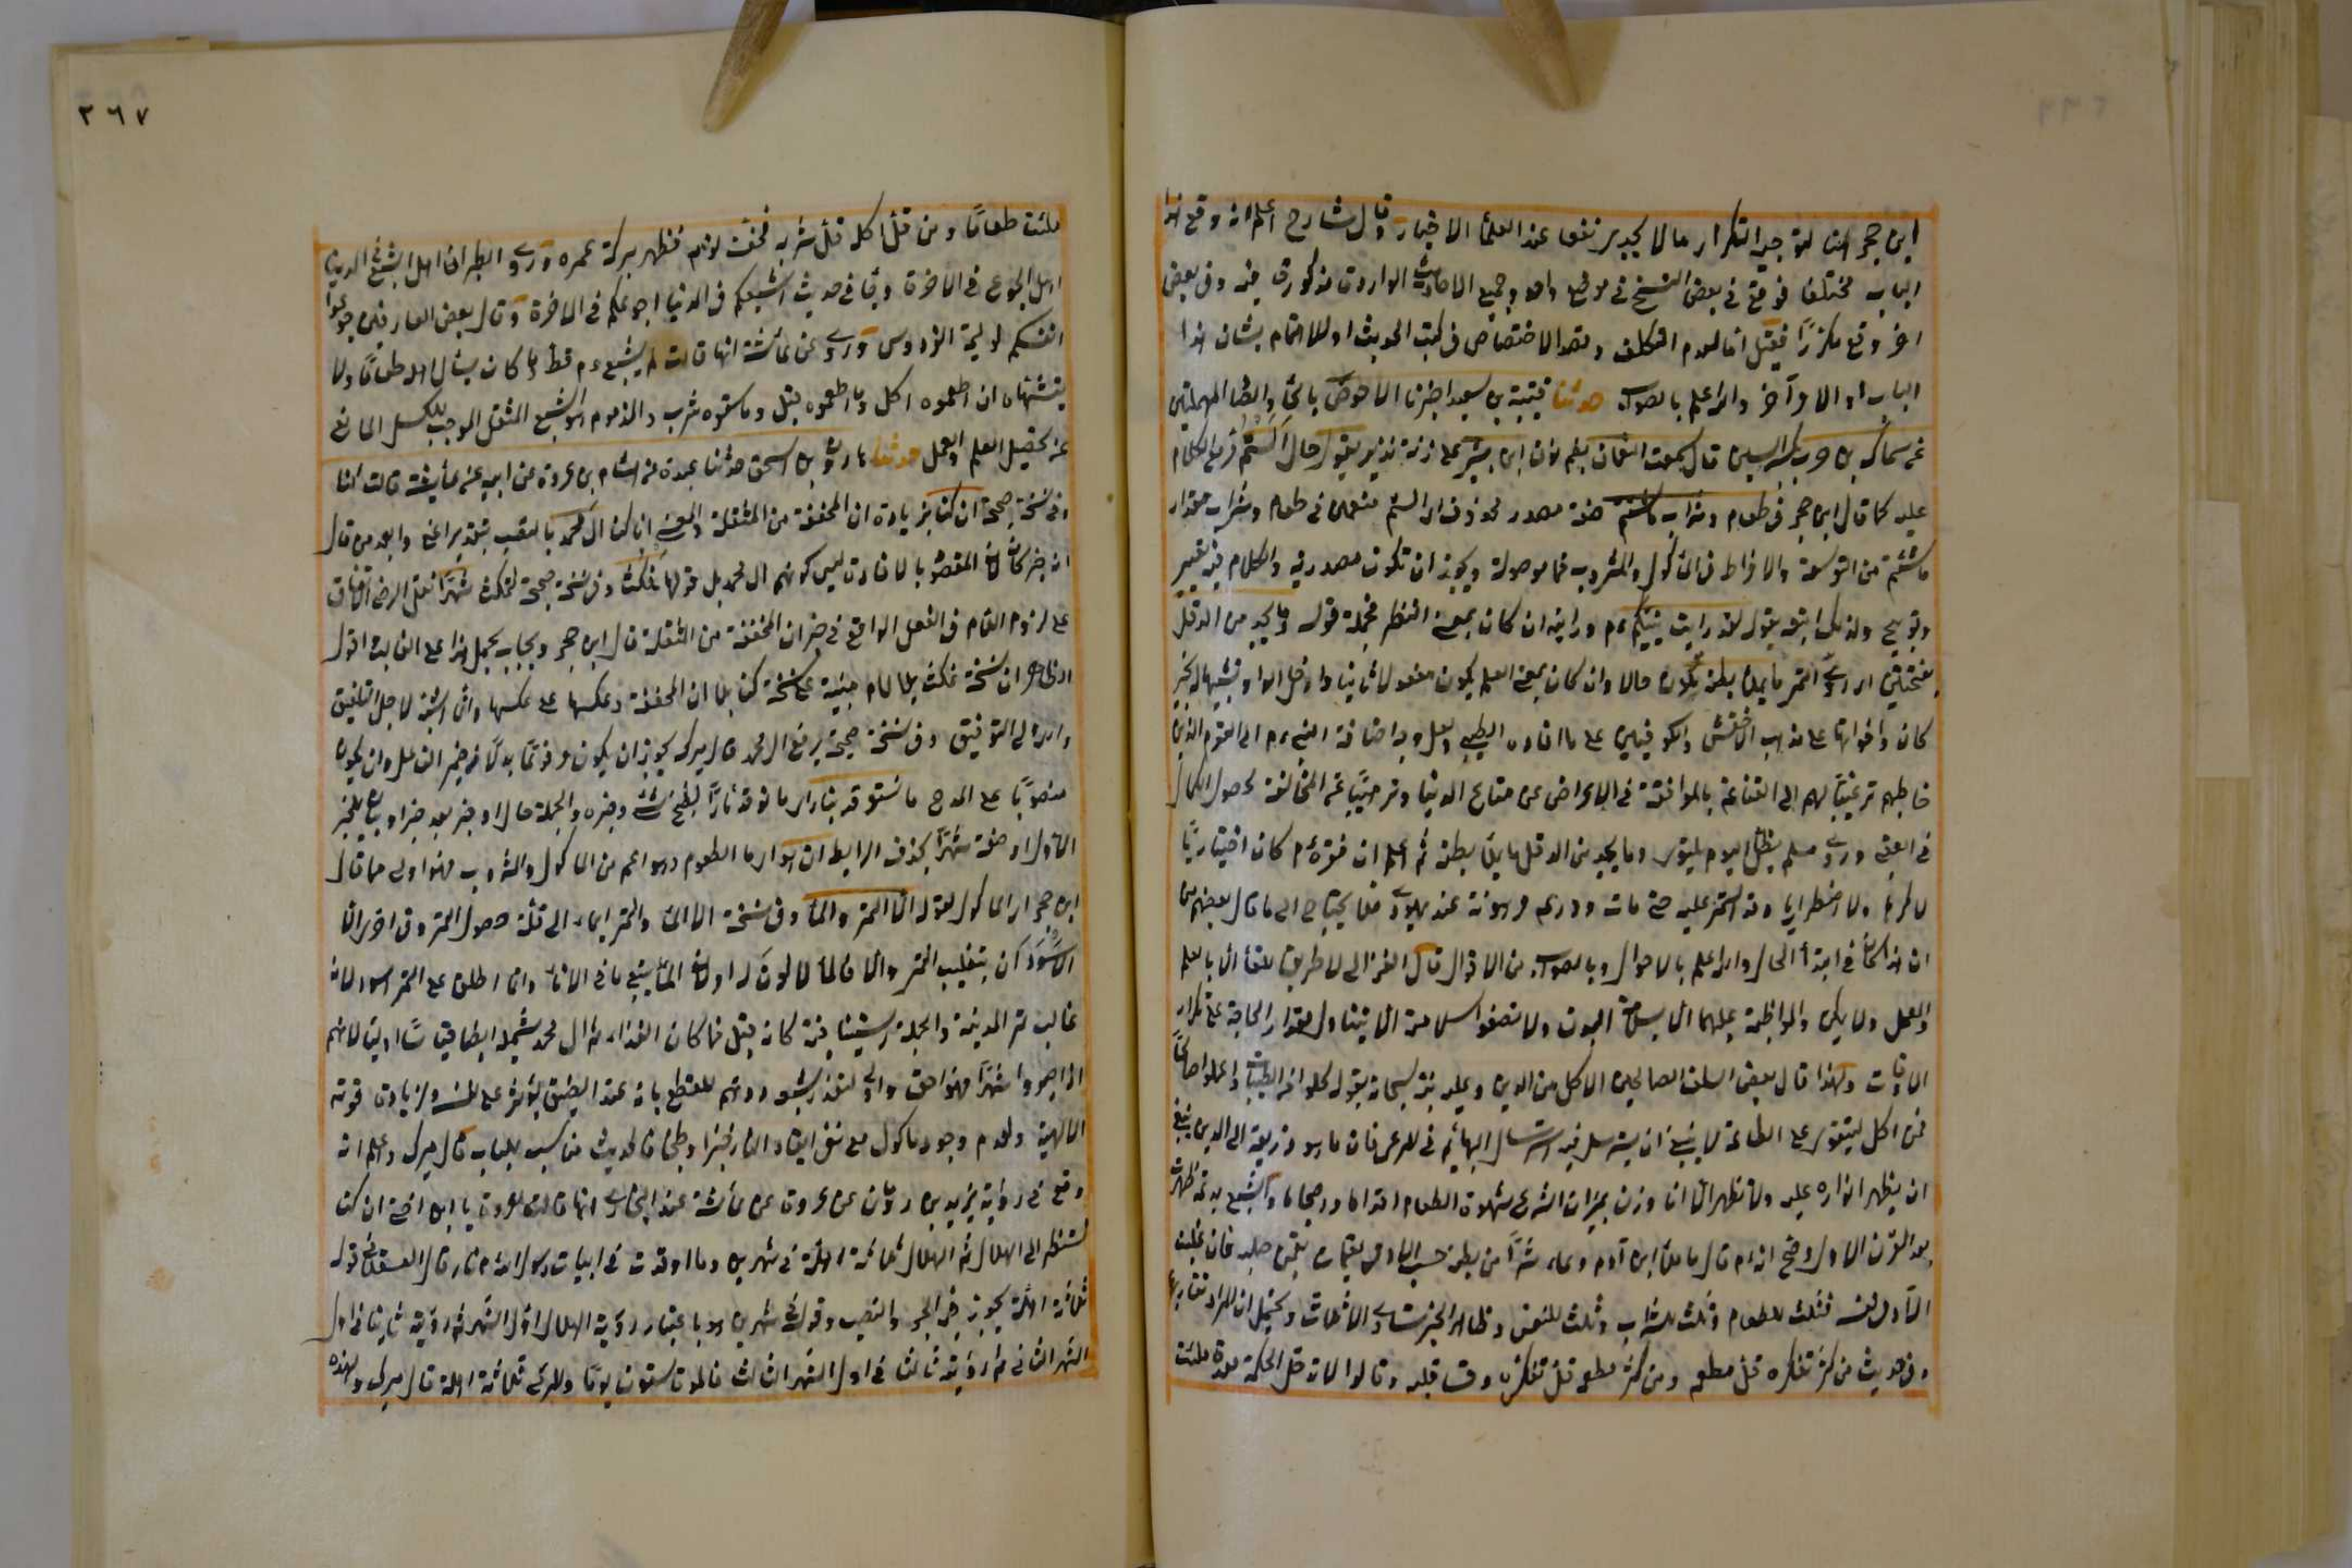 ابن حجر هنا لتوجيه التكرار مما لا يجدي نفعا عند العلماء الاخيار وقال شارح اعلم انه وقع هذا
الباب مختلفا فوقع في بعض النسخ في موضع واحد وجميع الاحاديث الواردة مذكورة فيه وفي بعض
اخر وقع مكررًا فقيل اما لعدم التكلف وقصد الاختصاص في كتب الحديث او للاهتمام بشان هذا
الباب اولا وآخر والله اعلم بالصواب حدثنا قتيبة بن سعيد اخبرنا ابو الاحوص بالحاء والصاد المهملتين
عن سماك بن حرب قال سمعت النعمان بضم نون ابن بشير على زنة نذير يقول حال الستم قرئ الكلام
عليه كما قال ابن حجر في طعام وشراب ما شئتم صفة مصدر محذوف اي الستم متنعمين في طعام وشراب مقدار
ما شئتم من التوسعة والافراط في المأكول والمشروب فما موصولة ويجوز ان تكون مصدرية والكلام فيه تعيير
وتوبيخ ولذلك اتبعه بقوله لقد رايت نبيكم ءم ورايته ان كان بمعنى النظر فجملة قوله وما يجد من الدقل
بفتحتين اي ردي التمر ما يملأ بطنه يكون حالا وان كان بمعنى العلم يكون مفعولا ثانيا وادخل الواو تشبيها له بخبر
كان واخواتها على مذهب الاخفش والكوفيين على ما افاده الطيبي ولعل وجه اضافة النبي ءم الى القوم الذين
خاطبهم ترغيبًا لهم الى القناعة بالموافقة في الاعراض عن متاع الدنيا وترهيبًا عن المخالفة لحصول الكمال
في العقبى وروي مسلم يظل اليوم يلتوي وما يجد من الدقل ما يملأ بطنه ثم اعلم ان فقره ءم كان اختياريًا
لا كرها ولا اضطراريا وقد استمر عليه حتى مات ودرعه مرهونة عند يهودي فلا يحتاج الى ما قال بعضهم من
ان هذا كان في ابتدأ الحال والله اعلم بالاحوال وبالصواب من الاقوال قال الغزالي لا طريق للقاء الا بالعلم
والعمل ولا يمكن المواظبة عليهما الا بسلامة البدن ولا تصفو سلامته الا بتناول مقدار الحاجة على تكرار
الاوقات ولهذا قال بعض السلف الصالحين الاكل من الدين وعليه نبه سبحانه بقوله كلوا من الطيبات واعملوا صالحًا
فمن اكل ليتقوى على الطاعة لا ينبغي ان يسترسل فيه استرسال البهائم في المرعى فان ما هو ذريعة الى الدين ينبغي
ان يظهر انواره عليه ولا تظهر الا ان وزن بميزان الشرع شهوة الطعام اقداما واحجاما والشبع بدعة ظهرت
بعد القرن الاول وصح انه ءم قال ما ملأ ابن آدم وعاء شرًا من بطن حسب الآدمي لقيمات يقمن صلبه فان غلبت
الآدمي نفسه فثلث للطعام وثلث للشراب وثلث للنفس وظاهر الخبر تساوي الاثلاث ويحتمل ان المراد تقاربها
وفي حديث من كثر تفكره قل مطعمه ومن كثر مطعمه قل تفكره وقسا قلبه وقالوا لا تدخل الحكمة معدة ملئت
٣٦٧
ملئت طعامًا ومن قل اكله قل شربه فخف نومه فظهر بركة عمره وروي الطبراني اهل الشبع في الدنيا
اهل الجوع في الاخرة وجا في حديث اشبعكم في الدنيا اجوعكم في الاخرة وقال بعض العارفين جوعوا
انفسكم لوليمة الفردوس وروي عن عائشة انها قالت لم يشبع ءم قط وما كان يسأل اهله طعامًا ولا
يتشهاه ان اطعموه اكل وما اطعموه قبل وما سقوه شرب والمذموم هو الشبع المثقل الموجب للكسل المانع
عن تحصيل العلم والعمل حدثنا هارون بن اسحق حدثنا عبدة عن هشام بن عروة عن ابيه عن عائشة قالت كنا
وفي نسخة صحيحة ان كنا بزيادة ان المخففة من المثقلة والمعنى انا كنا آل محمد بالنصب بتقدير اعني وابعد من قال
انه خبر كان لان المقصود بالافادة ليس كونهم آل محمد بل قولها نمكث وفي نسخة صحيحة لنمكث شهرًا
على لزوم اللام في الفعل الواقع في خبر ان المخففة من المثقلة قال ابن حجر ويجاب بحمل هذا على الغالب اقول
الظاهر ان نسخة نمكث بلا لام مبنية على نسخة كنا بلا ان المخففة وعكسها على عكسها وانما لاجل التلفيق
والله ولي التوفيق وفي نسخة صحيحة برفع آل محمد قال ميرك يجوز ان يكون مرفوعًا بدلًا من ضمير الفاعل وان يكون
منصوبًا على المدح ما نستوقد بنار اي ما نوقد نارًا لطبخ شئ وخبزه والجملة حال او خبر بعد خبر او بيان للخبر
الاول او صفة شهرًا بحذف الرابط ان هو اي ما الطعام وهو اعم من المأكول والمشروب فهذا اولى مما قال
ابن حجر اي المأكول لقوله الا التمر والماء وفي نسخة الا الماء والتمر ايماء الى قلة حصول التمر وفي اخرى الا
الاسودان بتغليب التمر والا فالماء لا لون له او لان الماء يتبع ما في الاناء وانما اطلق على التمر اسود لانه
غالب تمر المدينة والجملة استينافية كانه قيل فما كان الغذاء ثم آل محمد يشمله ايضا لانهم
اذا صبروا شهرًا فهو احق واولى للقطع بانه عند الضيق يؤثر على نفسه ولزيادة قوته
الالهية ولعدم وجود مأكول مع نفي ايقاد النار خبزا وطبخا فالحديث مناسب للباب قال ميرك واعلم انه
وقع في رواية يزيد بن رومان عن عروة عن عائشة عند البخاري انها قالت لعروة يا ابن اختي ان كنا
لننظر الى الهلال ثم الهلال ثلاثة اهلة في شهرين وما اوقدت في ابيات رسول الله ءم نار قال العسقلاني قوله
ثلاثة اهلة يجوز فيه الجر والنصب وقوله في شهرين هو باعتبار رؤية الهلال اول الشهر ثم رؤيته ثانيا في اول
الشهر الثاني ثم رؤيته ثالثا في اول الشهر الثالث فالمدة ستون يومًا والمرئي ثلاثة اهلة قال ميرك ولهذه